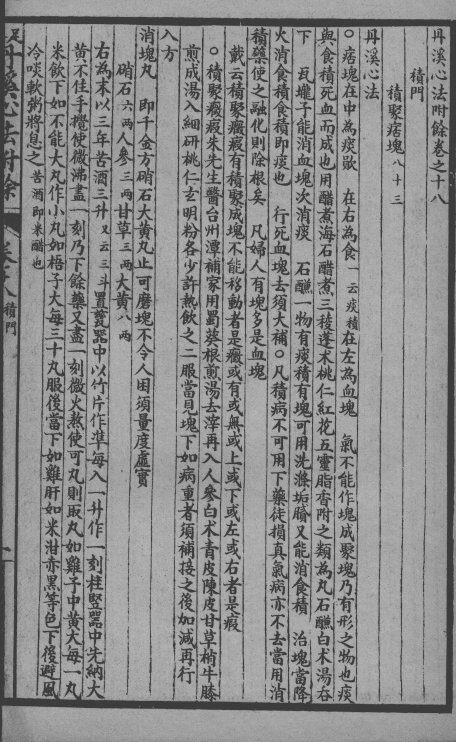 丹溪心法附餘卷之十八
積門
積聚痞塊八十三
丹溪心法
○痞塊在中為痰飲　在右為食一云痰積在左為血塊　氣不能作塊成聚塊乃有形之物也痰
與食積死血而成也用醋煮海石醋煮三稜蓬朮桃仁紅花五靈脂香附之類為丸石醶白朮湯吞
下　瓦壠子能消血塊次消痰　石醶一物有痰積有塊可用洗滌垢膩又能消食積　治塊當降
火消食積食積即痰也　行死血塊去須大補○凡積病不可用下藥徒損真氣病亦不去當用消
積藥使之融化則除根矣　凡婦人有塊多是血塊
戴云積聚癥瘕有積聚成塊不能移動者是癥或有或無或上或下或左或右者是瘕
○積聚癥瘕朱先生醫台州潭補家用蜀葵根煎湯去滓再入人參白朮青皮陳皮甘草梢牛膝
煎成湯入細研桃仁玄明粉各少許熱飲之二服當見塊下如病重者須補接之後加減再行
入方
消塊丸　即千金方硝石大黃丸止可磨塊不令人困須量度虛實
硝石六兩人參三兩甘草三兩大黃八兩
右為末以三年苦酒三升又云三斗置甆器中以竹片作準每入一升作一刻柱豎器中先納大
黃不住手攪使微沸盡一刻乃下餘藥又盡一刻微火熬使可丸則取丸如雞子中黃大每一丸
米飲下如不能大丸作小丸如梧子大每三十丸服後當下如雞肝如米泔赤黑等色下後避風
冷啖軟粥將息之苦酒即米醋也
丹溪心法附餘　卷十八　積門　一